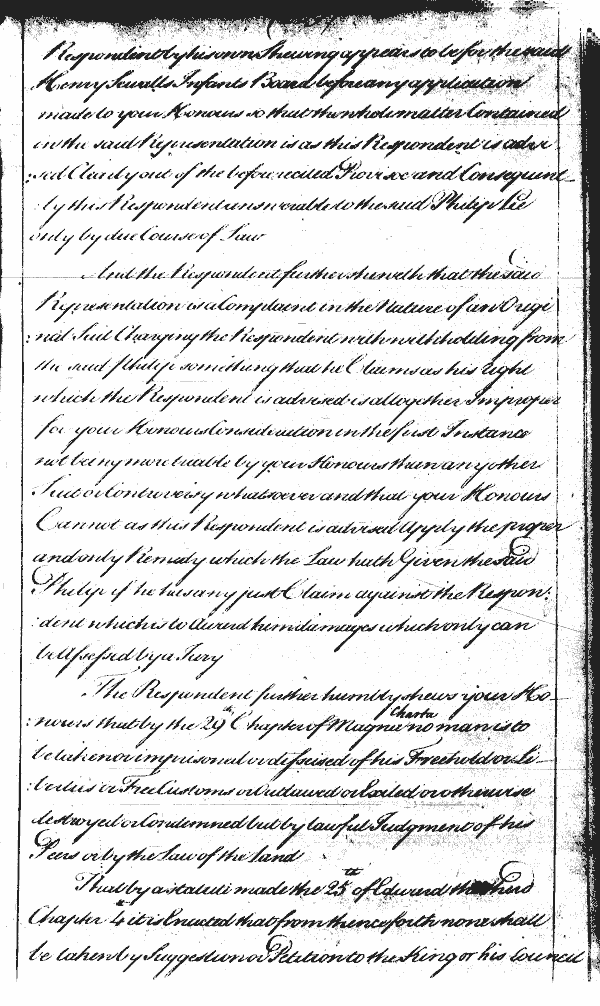 Respondent by his own Shewing appears to be for the said
Henry Sewalls Infants Board before any application
made to your Honours so that the whole matter Contained
in the said Representation is as this Respondent is advi
:sed Clearly out of the before recited Proviso and Consequent
:ly this Respondent answerable to the said Philip Lee
only by due Course of Law
And the Respondent further sheweth that the said
Representation is a Complaint in the Nature of an Origi
:nal Suit Charging the Respondent with withholding from
the said Philip something that he Claims as his right
which the Respondent is advised is altogether Improper
for your Honours Consideration in the first Instance
not being more triable by your Honours than any other
Suit or Controversy whatsoever and that your Honours
Cannot as this Respondent is advised Apply the proper
and only Remedy which the Law hath Given the said
Philip if he has any just Claim against the Respon:
:dent which is to award him damages which only can
be Assessed by a Jury
The Respondent further humbly shews your Ho
:nours that by the 29th Chapter of Magna Charta no man is to
be taken or imprisoned or disseised of his Freehold or Li
:berties or Free Customs or Outlawed or Exiled or otherwise
destroyed or Condemned but by lawful Judgment of his
Peers or by the Law of the Land
That by a statute made the 25th of Edward the third
Chapter 4 it is Enacted that from thenceforth none shall
be taken by Suggestion or Petition to the King or his Council